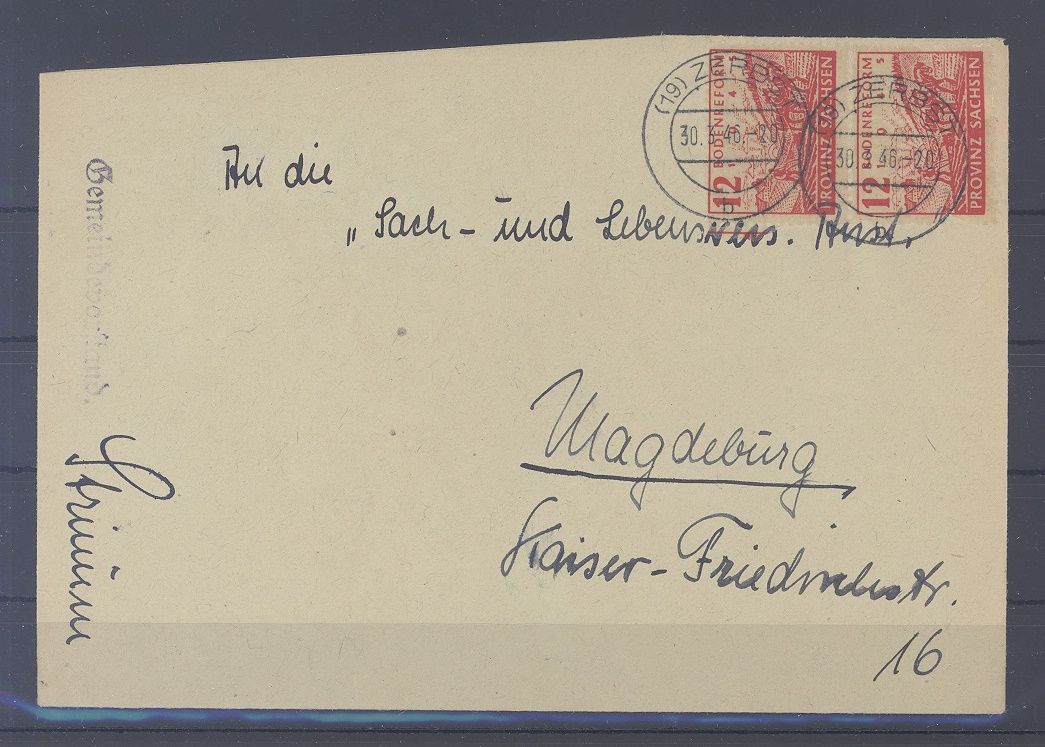 (19) ZERBST
30.3.46.-20
b
12 BODENREFORM
1945
PROVINZ SACHSEN
(19) ZERBST
30.3.46.-20
12 BODENREFORM
1945
PROVINZ SACHSEN
An die
„Sach- und Lebensvers. Anst.
Magdeburg
Kaiser-Friedrichstr.
16
Gemeindevorstand.